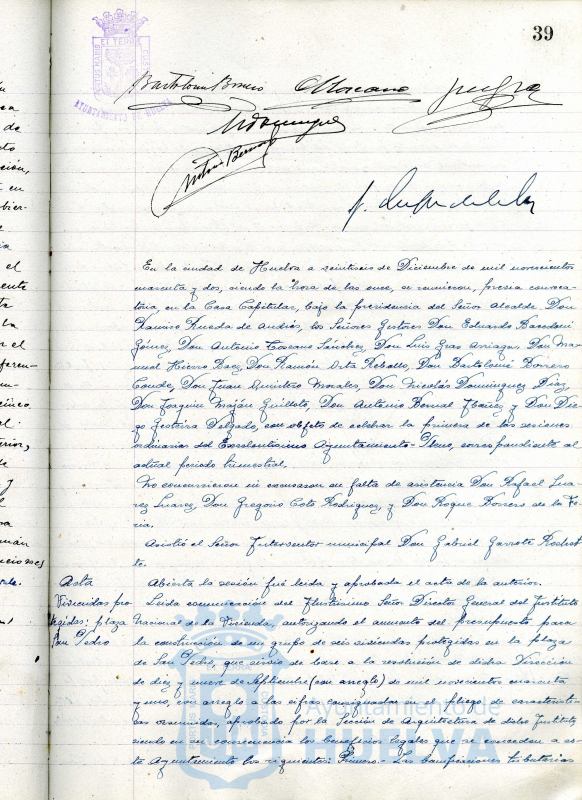 39
AYUNTAMIENTO DE HUELVA
Bartolomé Borrero
Antonio Bernal
En la ciudad de Huelva a veintiseis de Diciembre de mil novecientos
cuarenta y dos, siendo la hora de las once, se reunieron, previa convoca-
toria, en la Casa Capitular, bajo la presidencia del Señor Alcalde Don
Ramiro Rueda de Andrés, los Señores Gestores Don Eduardo Baredoni
Gómez, Don Antonio Toscano Sánchez, Don Luis Grao Arriagas, Don Ma-
nuel Hierro Baez, Don Ramón Orta Rebollo, Don Bartolomé Borrero
Conde, Don Juan Quintero Morales, Don Nicolás Domínguez Díaz,
Don Joaquín Guilloto, Don Antonio Bernal y Don Die-
go Gesteira Delgado, con objeto de celebrar la primera de las sesiones
ordinarias del Excelentísimo Ayuntamiento-Pleno, correspondiente al
actual periodo trimestral.
No concurrieron ni excusaron su falta de asistencia Don Rafael Sua-
rez Suarez, Don Gregorio Coto Rodriguez, y Don Roque Borrero de la Fe-
ria.
Asistió el Señor Interventor municipal Don Gabriel Garrote
te.
Acta
Abierta la sesión fué leida y aprobada el acta de la anterior.
Viviendas pro
tegidas: plaza
San Pedro
Leida comunicación del Ilustrísimo Señor Director General del Instituto
Nacional de la Vivienda, autorizando el aumento del presupuesto para
la construcción de un grupo de seis viviendas protegidas en la plaza
de San Pedro, que sirvió de base a la resolución de dicha Dirección
de diez y nueve de Septiembre (con arreglo) de mil novecientos cuarenta
y uno, con arreglo a las cifras consignadas en el pliego de caracteristi-
cas resumidas, aprobado por la Sección de Arquitectura de dicho Instituto,
siendo en su consecuencia los beneficios legales que se conceden a es-
te Ayuntamiento los siguientes: Primero.- Las bonificaciones tributarias
Ayuntamiento de
HUELVA